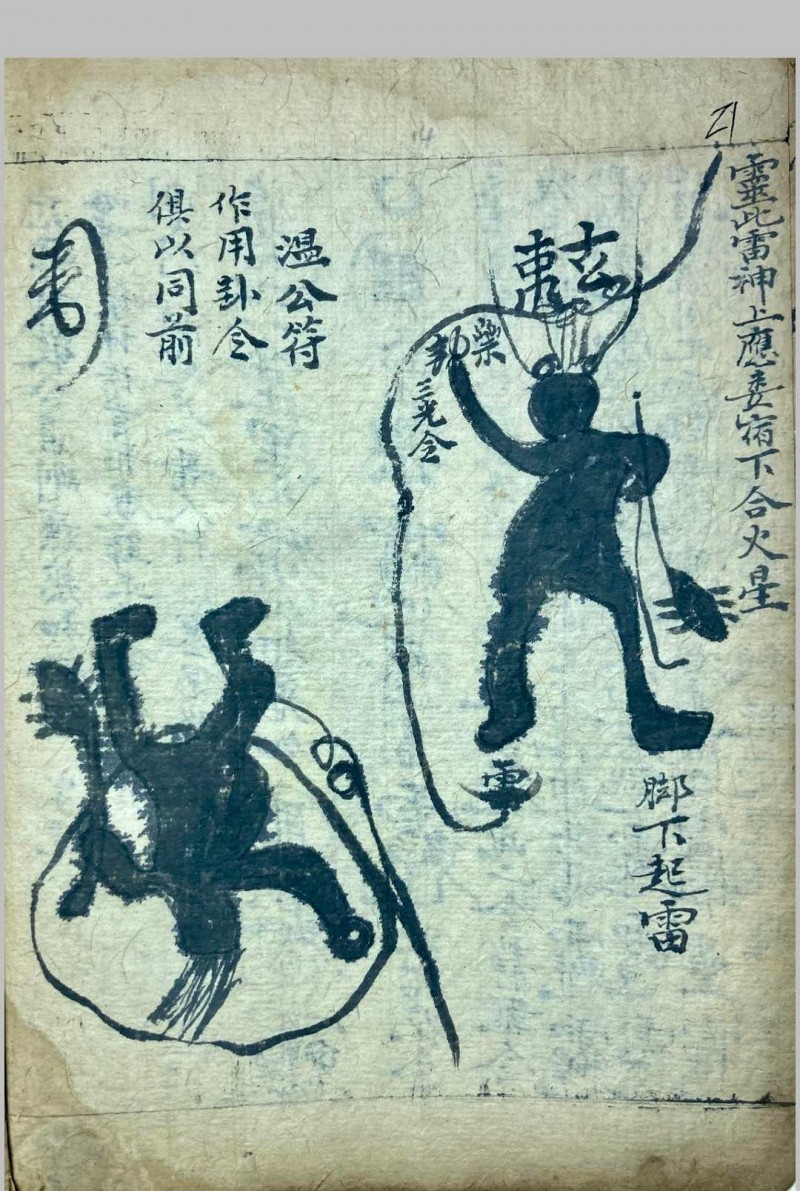 21
靈此雷神上應婁宿下合火星
玄
三光令
雷
脚下起雷
溫公符
作用卦令
俱以同前